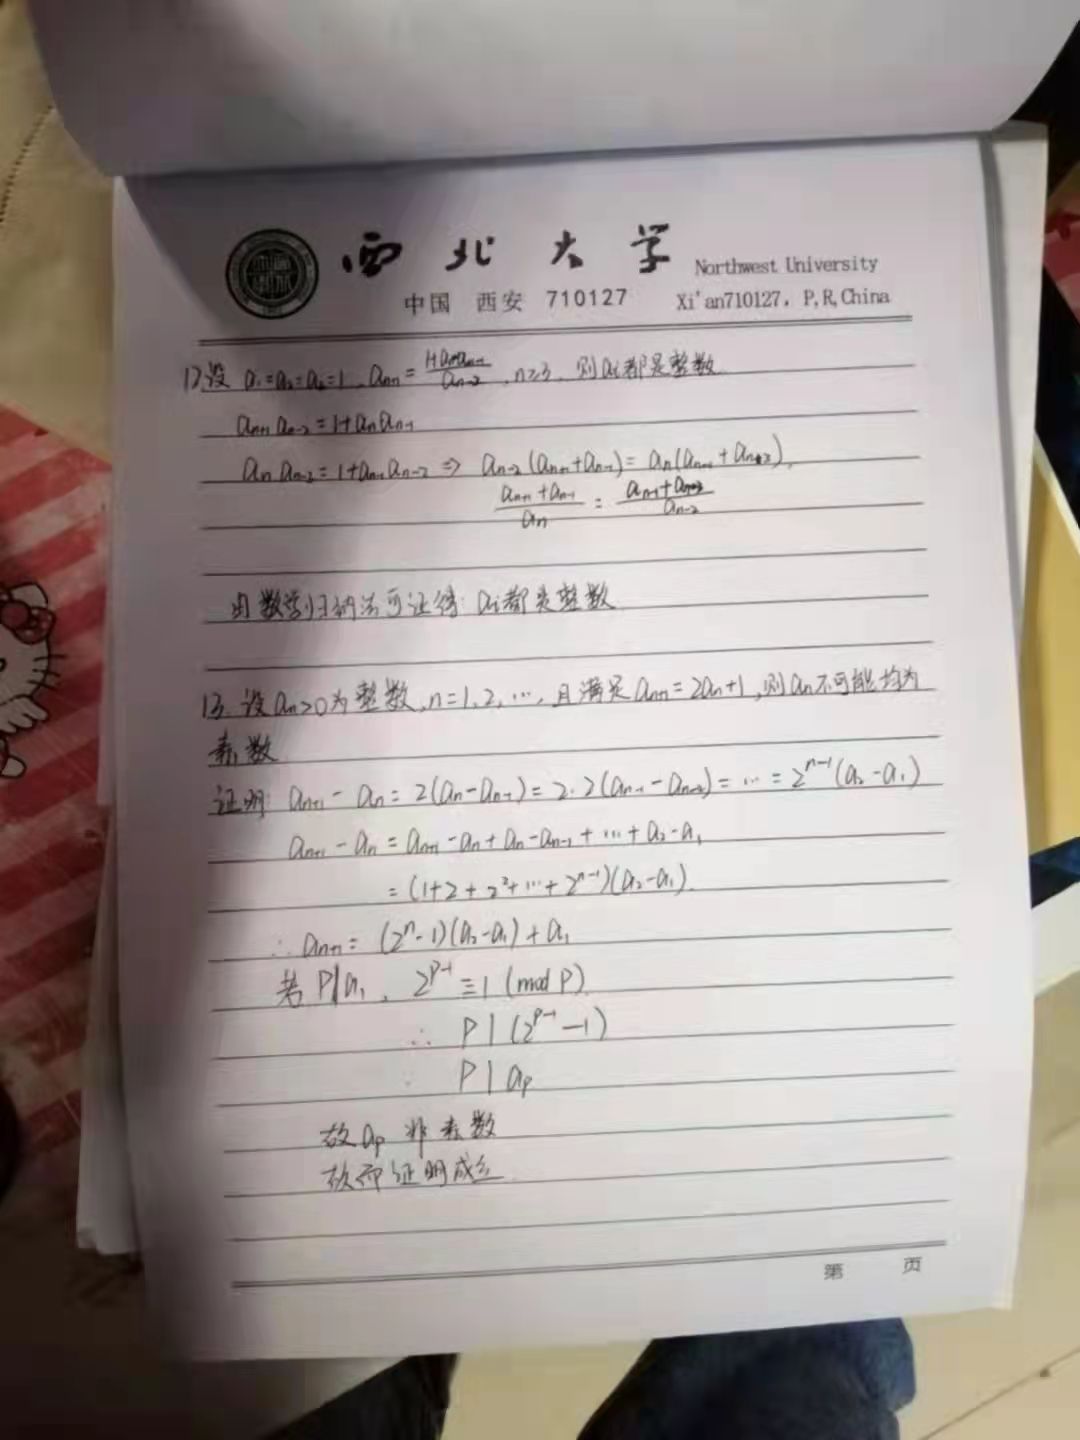 西北大学 Northwest University
中国 西安 710127 Xi'an710127, P,R,China
12.设 a₁=a₂=a₃=1, aₙ₊₁ = (1+aₙaₙ₋₁)/aₙ₋₂, n≥3, 则aᵢ都是整数
aₙ₊₁aₙ₋₂=1+aₙaₙ₋₁
aₙaₙ₋₃=1+aₙ₋₁aₙ₋₂ ⇒ aₙ₋₂(aₙ₊₁+aₙ₋₁)=aₙ(aₙ₋₁+aₙ₋₃),
(aₙ₊₁+aₙ₋₁)/aₙ = (aₙ₋₁+aₙ₋₃)/aₙ₋₂
由数学归纳法可证得: aᵢ都是整数
13. 设aₙ>0为整数, n=1,2,…, 且满足aₙ₊₁=2aₙ+1, 则aₙ不可能均为
素数
证明: aₙ₊₁-aₙ=2(aₙ-aₙ₋₁)=2·2(aₙ₋₁-aₙ₋₂)=…=2ⁿ⁻¹(a₂-a₁)
aₙ₊₁-aₙ=aₙ₊₁-aₙ+aₙ-aₙ₋₁+…+a₂-a₁
=(1+2+2²+…+2ⁿ⁻¹)(a₂-a₁).
∴aₙ₊₁=(2ⁿ-1)(a₂-a₁)+a₁
若 P|a₁, 2ᵖ⁻¹≡1(mod P)
∴ P|(2ᵖ⁻¹-1)
P|aₚ
故aₚ非素数
故而证明成立.
第 页